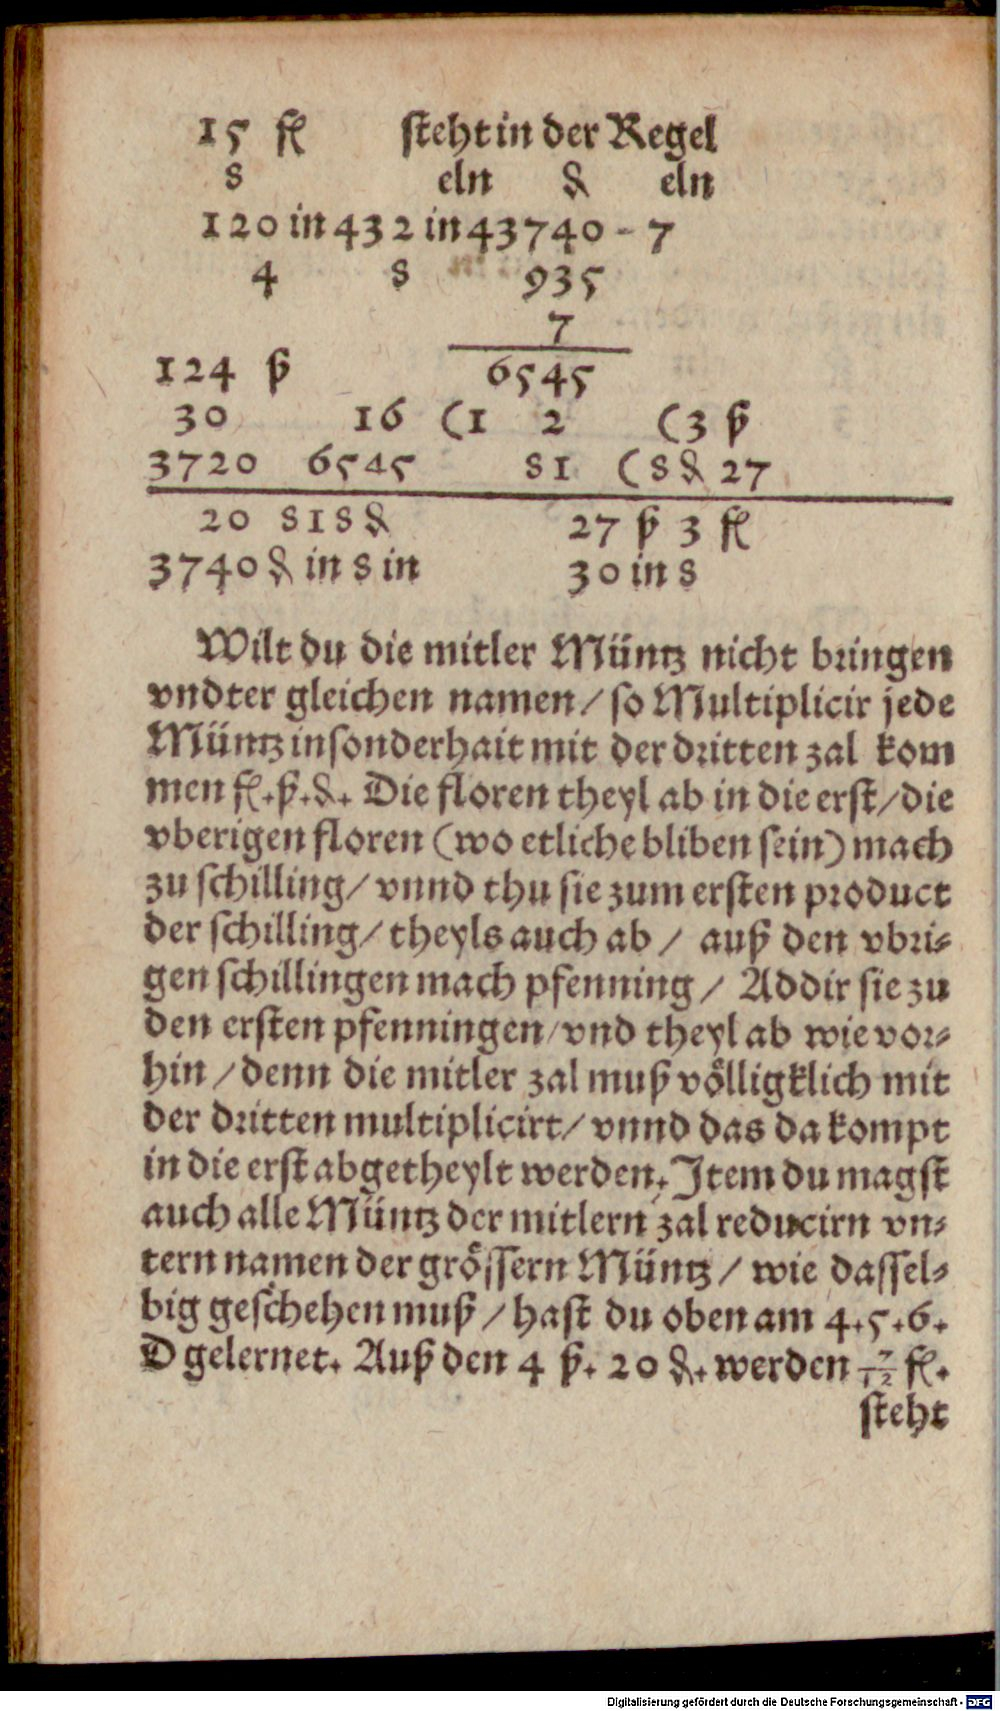 15 fl steht in der Regel
8 eln ₰ eln
120 in 432 in 43740 - 7
4 8 935
7
124 ß 6545
30 16 (1 2 (3 ß
3720 6545 81 (8 ₰ 27
20 818 ₰ 27 ß 3 fl
3740 ₰ in 8 in 30 in 8
Wilt du die mitler Müntz nicht bringen
vndter gleichen namen / so Multiplicir jede
Müntz insonderhait mit der dritten zal kom
men fl. ß. ₰. Die floren theyl ab in die erst / die
vberigen floren (wo etliche bliben sein) mach
zu schilling / vnnd thu sie zum ersten product
der schilling / theyls auch ab / auß den vbri⸗
gen schillingen mach pfenning / Addir sie zu
den ersten pfenningen / vnd theyl ab wie vor⸗
hin / denn die mitler zal muß völligklich mit
der dritten multiplicirt / vnnd das da kompt
in die erst abgetheylt werden. Item du magst
auch alle Müntz der mitlern zal reducirn vn⸗
tern namen der grössern Müntz / wie dassel⸗
big geschehen muß / hast du oben am 4. 5. 6.
D gelernet. Auß den 4 ß. 20 ₰. werden 7/12 fl.
steht
Digitalisierung gefördert durch die Deutsche Forschungsgemeinschaft - DFG